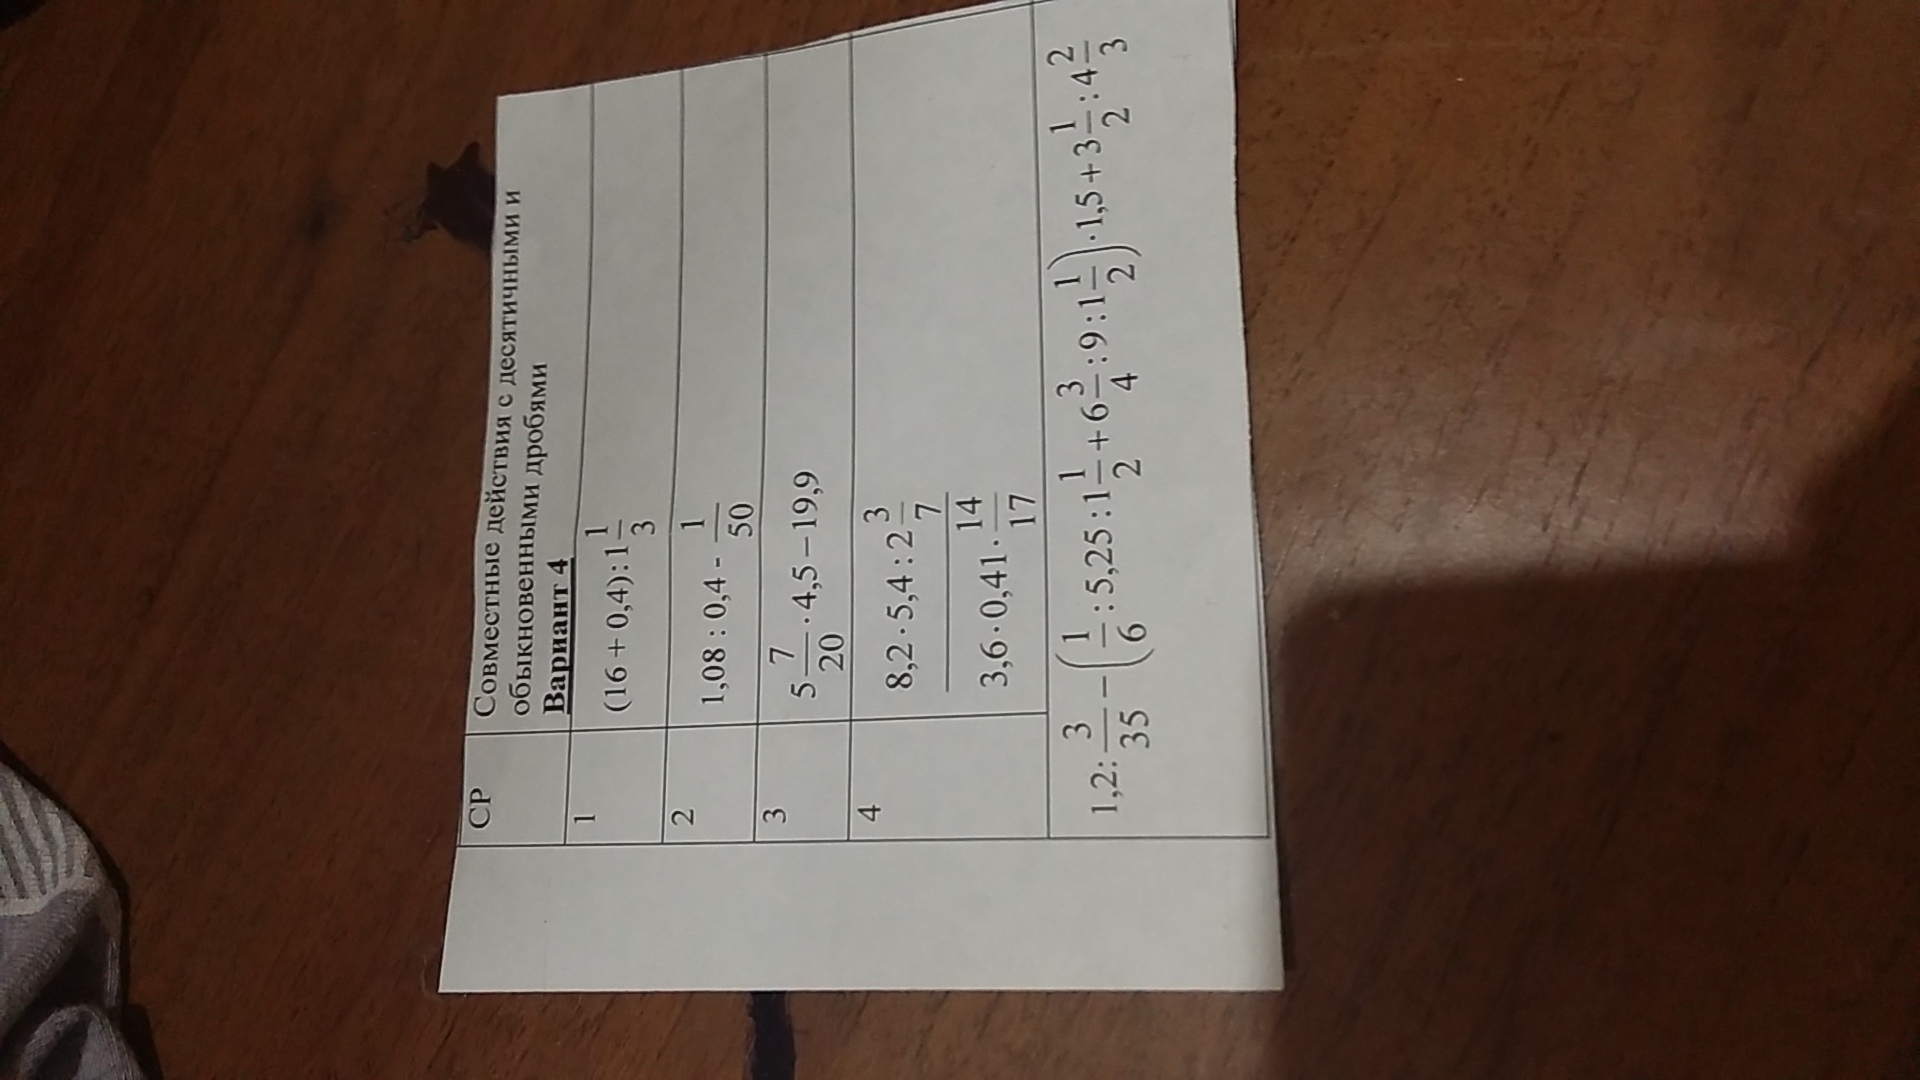 СР Совместные действия с десятичными и
обыкновенными дробями
Вариант 4
1 (16 + 0,4) : 1 1/3
2 1,08 : 0,4 - 1/50
3 5 7/20 · 4,5 – 19,9
4 8,2 · 5,4 : 2 3/7
3,6 · 0,41 · 14/17
1,2 : 3/35 – (1/6 : 5,25 : 1 1/2 + 6 3/4 : 9 : 1 1/2) · 1,5 + 3 1/2 : 4 2/3